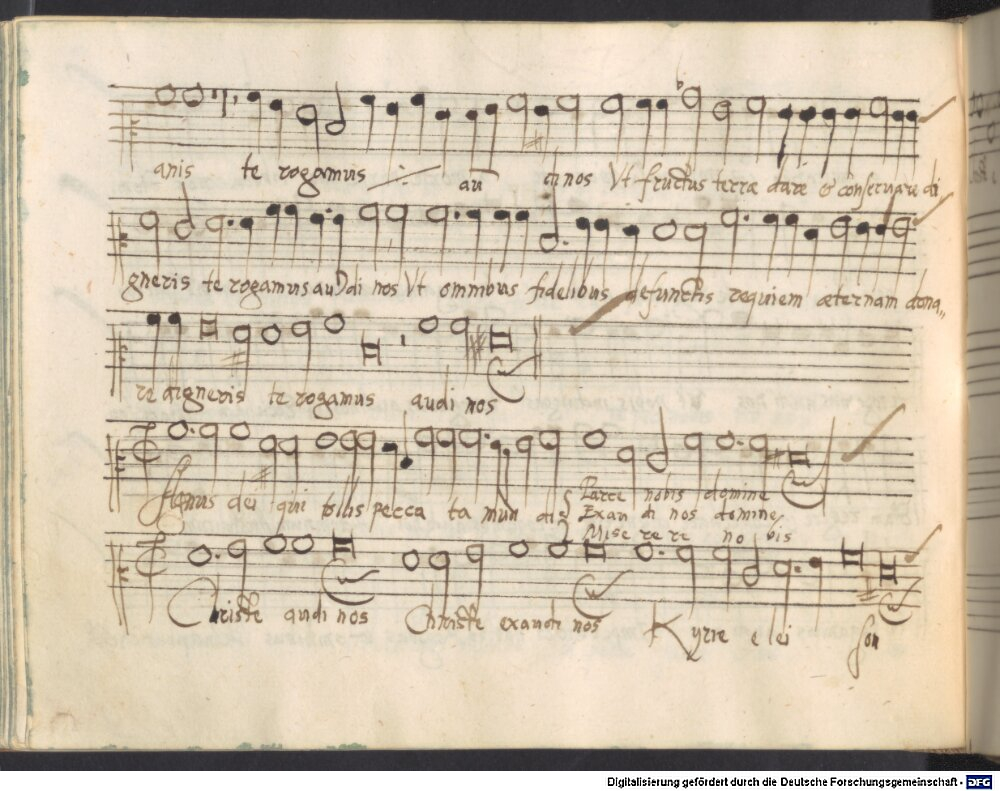 anis te rogamus au di nos Ut fructus terræ dare & conseruare di
gneris te rogamus audi nos Ut omnibus fidelibus defunctis requiem æternam dona„
re digneris te rogamus audi nos
Agnus dei qui tollis pecca ta mun di Parce nobis domine
Exau di nos domine
Mise re re no bis
Christe audi nos Christe exaudi nos Kyrie e lei son
Digitalisierung gefördert durch die Deutsche Forschungsgemeinschaft - DFG